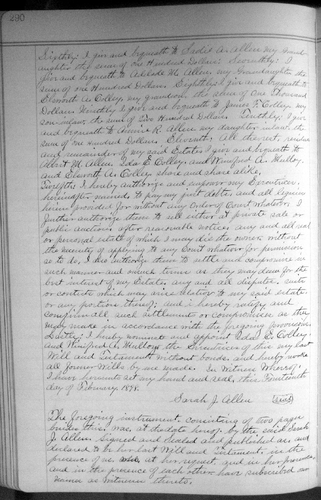 290
Sixthly: I give and bequeath to Sadie A. Allen my Grand-
daughter the sum of one Hundred Dollars. Seventhly: I
give and bequeath to Abbie M. Allen, my Granddaughter, the
sum of one Hundred Dollars. Eighthly: I give and bequeath to
Elsworth A. Colley my grandson, the sum of one Thousand
Dollars. Ninthly: I give and bequeath to James F. Colley my
son-in-law, the sum of two Hundred Dollars. Tenthly: I give
and bequeath to Annie R. Allen my daughter-in-law, the
sum of one Hundred Dollars. Eleventh: All the rest, residue
and remainder of my said Estate I give and bequeath to
Albert M. Allen, Ada E. Colley and Winifred A.
and Elsworth A. Colley share and share alike.
Twelfth: I hereby authorize and empower my Executrices,
hereinafter named to pay my just debts, and all legacies
herein provided for without any Order of Court whatever. I
further authorize them to sell either at private sale or
public auction, after reasonable notice, any and all real
or personal estate of which I may die the owner, without
the necessity of applying to any Court whatever for permission
so to do. I also authorize them to settle and compromise in
such manner and on such terms as they may deem for the
best interest of my Estate, any and all disputes, suits
or contests which may arise relating to my said estate
or any portion thereof; and I hereby ratify and
confirm all such settlements or compromises as they
may make in accordance with the foregoing provisions.
Lastly: I hereby nominate and appoint Ada E. Colley
and Winifred A. the Executrices of this my last
Will and Testament without bonds, and hereby revoke
all former Wills by me made. In Witness Whereof,
I have hereunto set my hand and seal, this
day of February 1898.
Sarah J. Allen (seal)
The foregoing instrument, consisting of two pages
besides this, was, at the date hereof, by the said Sarah
J. Allen, signed and sealed and published as, and
declared to be her last Will and Testament, in the
presence of us who at her request, and in her presence,
and in the presence of each other, have subscribed our
names as witnesses thereto.